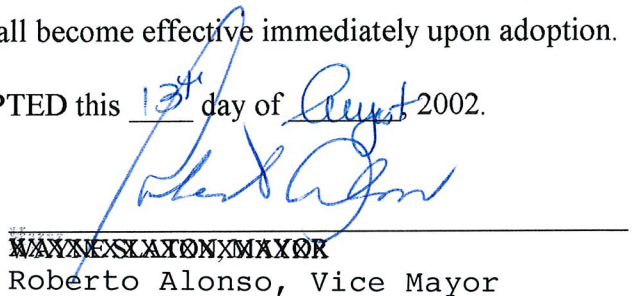 all become effective immediately upon adoption.
PTED this 13th day of August, 2002.
WAYNE SLATON, MAYOR
Roberto Alonso, Vice Mayor